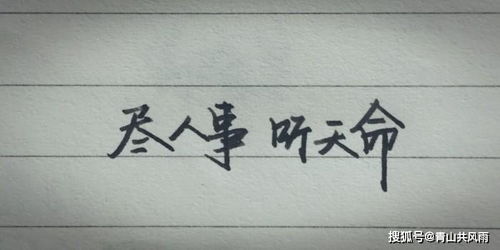 尽人事 听天命
搜狐号@青山共风雨